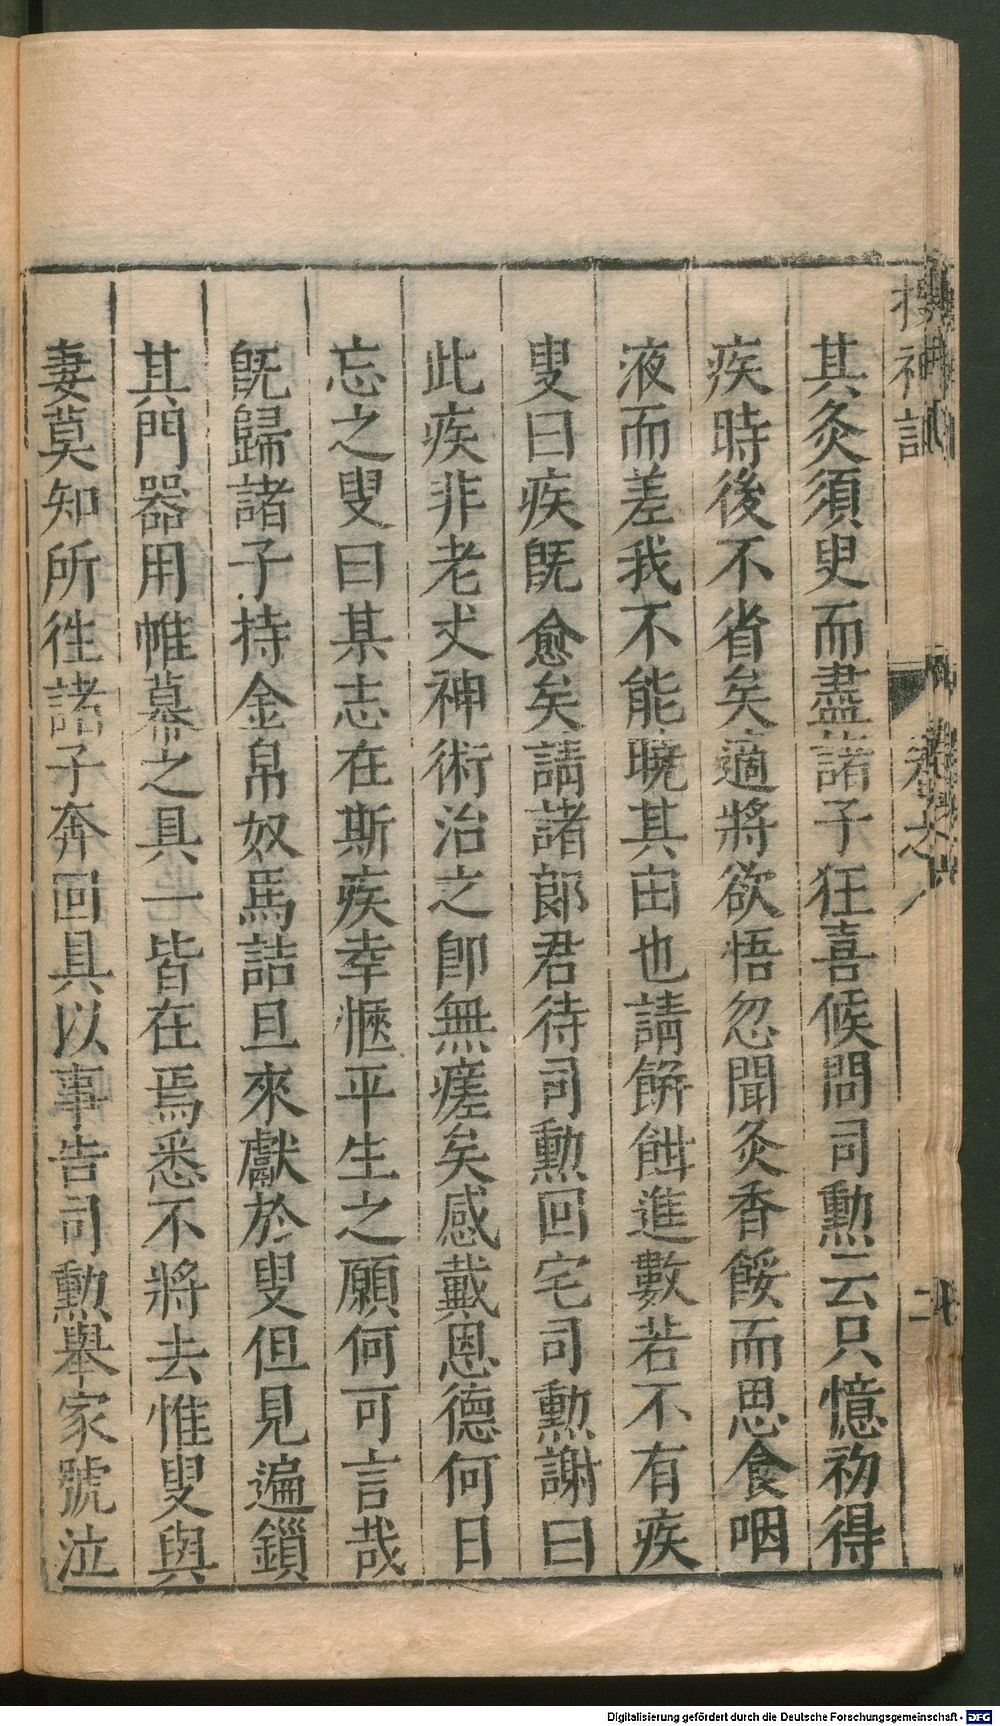 搜神記
卷之六
二
其灸須臾而盡諸子狂喜候問司勲云只憶初得
疾時後不省矣適將欲悟忽聞灸香餒而思食咽
液而差我不能曉其由也請餅餤進數若不有疾
叟曰疾旣愈矣請諸郎君待司勲回宅司勲謝曰
此疾非老丈神術治之卽無瘥矣感戴恩德何日
忘之叟曰某志在斯疾幸愜平生之願何可言哉
旣歸諸子持金帛奴馬詰旦來獻於叟但見遍鎖
其門器用帷幕之具一皆在焉悉不將去惟叟與
妻莫知所徃諸子奔回具以事告司勲舉家號泣
Digitalisierung gefördert durch die Deutsche Forschungsgemeinschaft - DFG